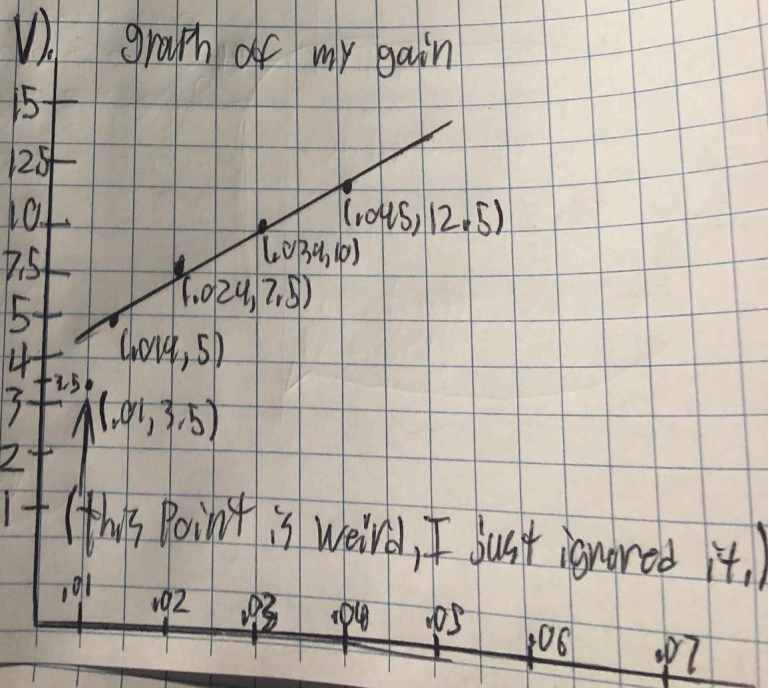 V).
graph of my gain
15
12.5
10
(.045, 12.5)
(.034, 10)
7.5
(.024, 7.5)
5
(.014, 5)
4
3.5
3
(.01, 3.5)
2
1
(this Point is weird, I just ignored it.)
.01 .02 .03 .04 .05 .06 .07